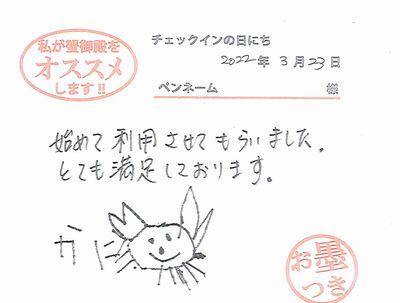 私が蟹御殿を
オススメ
します!!
チェックインの日にち
2022年 3月 23日
ペンネーム 様
始めて利用させてもらいました。
とても満足しております。
かに
お墨
つき